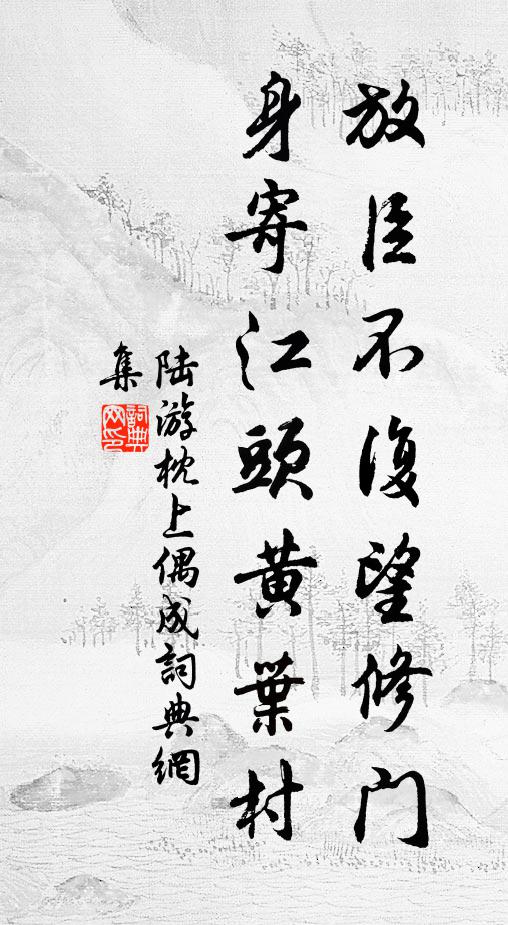 放臣不復望修門
身寄江頭黃葉村
陆游枕上偶成詞典網
集
詞典
网印